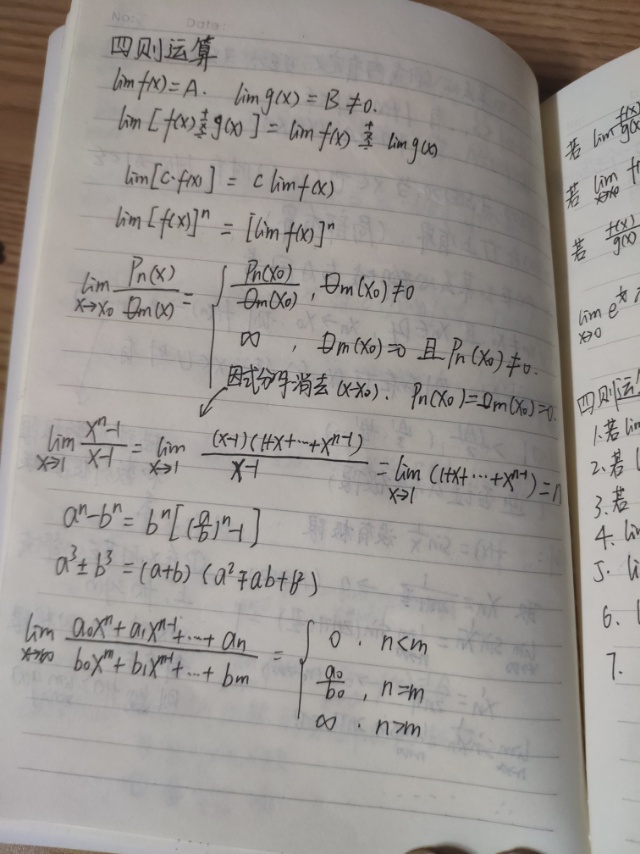 四则运算
lim f(x) = A. lim g(x) = B ≠ 0.
lim [f(x) ± g(x)] = lim f(x) ± lim g(x)
lim [c·f(x)] = c lim f(x)
lim [f(x)]ⁿ = [lim f(x)]ⁿ
lim x→x₀ Pn(x)/Qm(x) = { Pn(x₀)/Qm(x₀), Qm(x₀) ≠ 0
∞, Qm(x₀) = 0 且 Pn(x₀) ≠ 0.
因式分解消去 (x-x₀). Pn(x₀) = Qm(x₀) = 0.
lim x→1 (xⁿ-1)/(x-1) = lim x→1 (x-1)(1+x+…+xⁿ⁻¹)/(x-1) = lim x→1 (1+x+…+xⁿ⁻¹) = n
aⁿ-bⁿ = bⁿ[(a/b)ⁿ-1]
a³±b³ = (a±b)(a²∓ab+b²)
lim x→∞ (a₀xⁿ+a₁xⁿ⁻¹+…+an)/(b₀xᵐ+b₁xᵐ⁻¹+…+bm) = { 0. n<m
a₀/b₀, n=m
∞. n>m
若 lim f(x)/g(x)
若 lim
若 f(x)/g(x)
lim x→0
四则运算
1.若 lim
2.若
3.若
4. lim
5. li
6.
7.